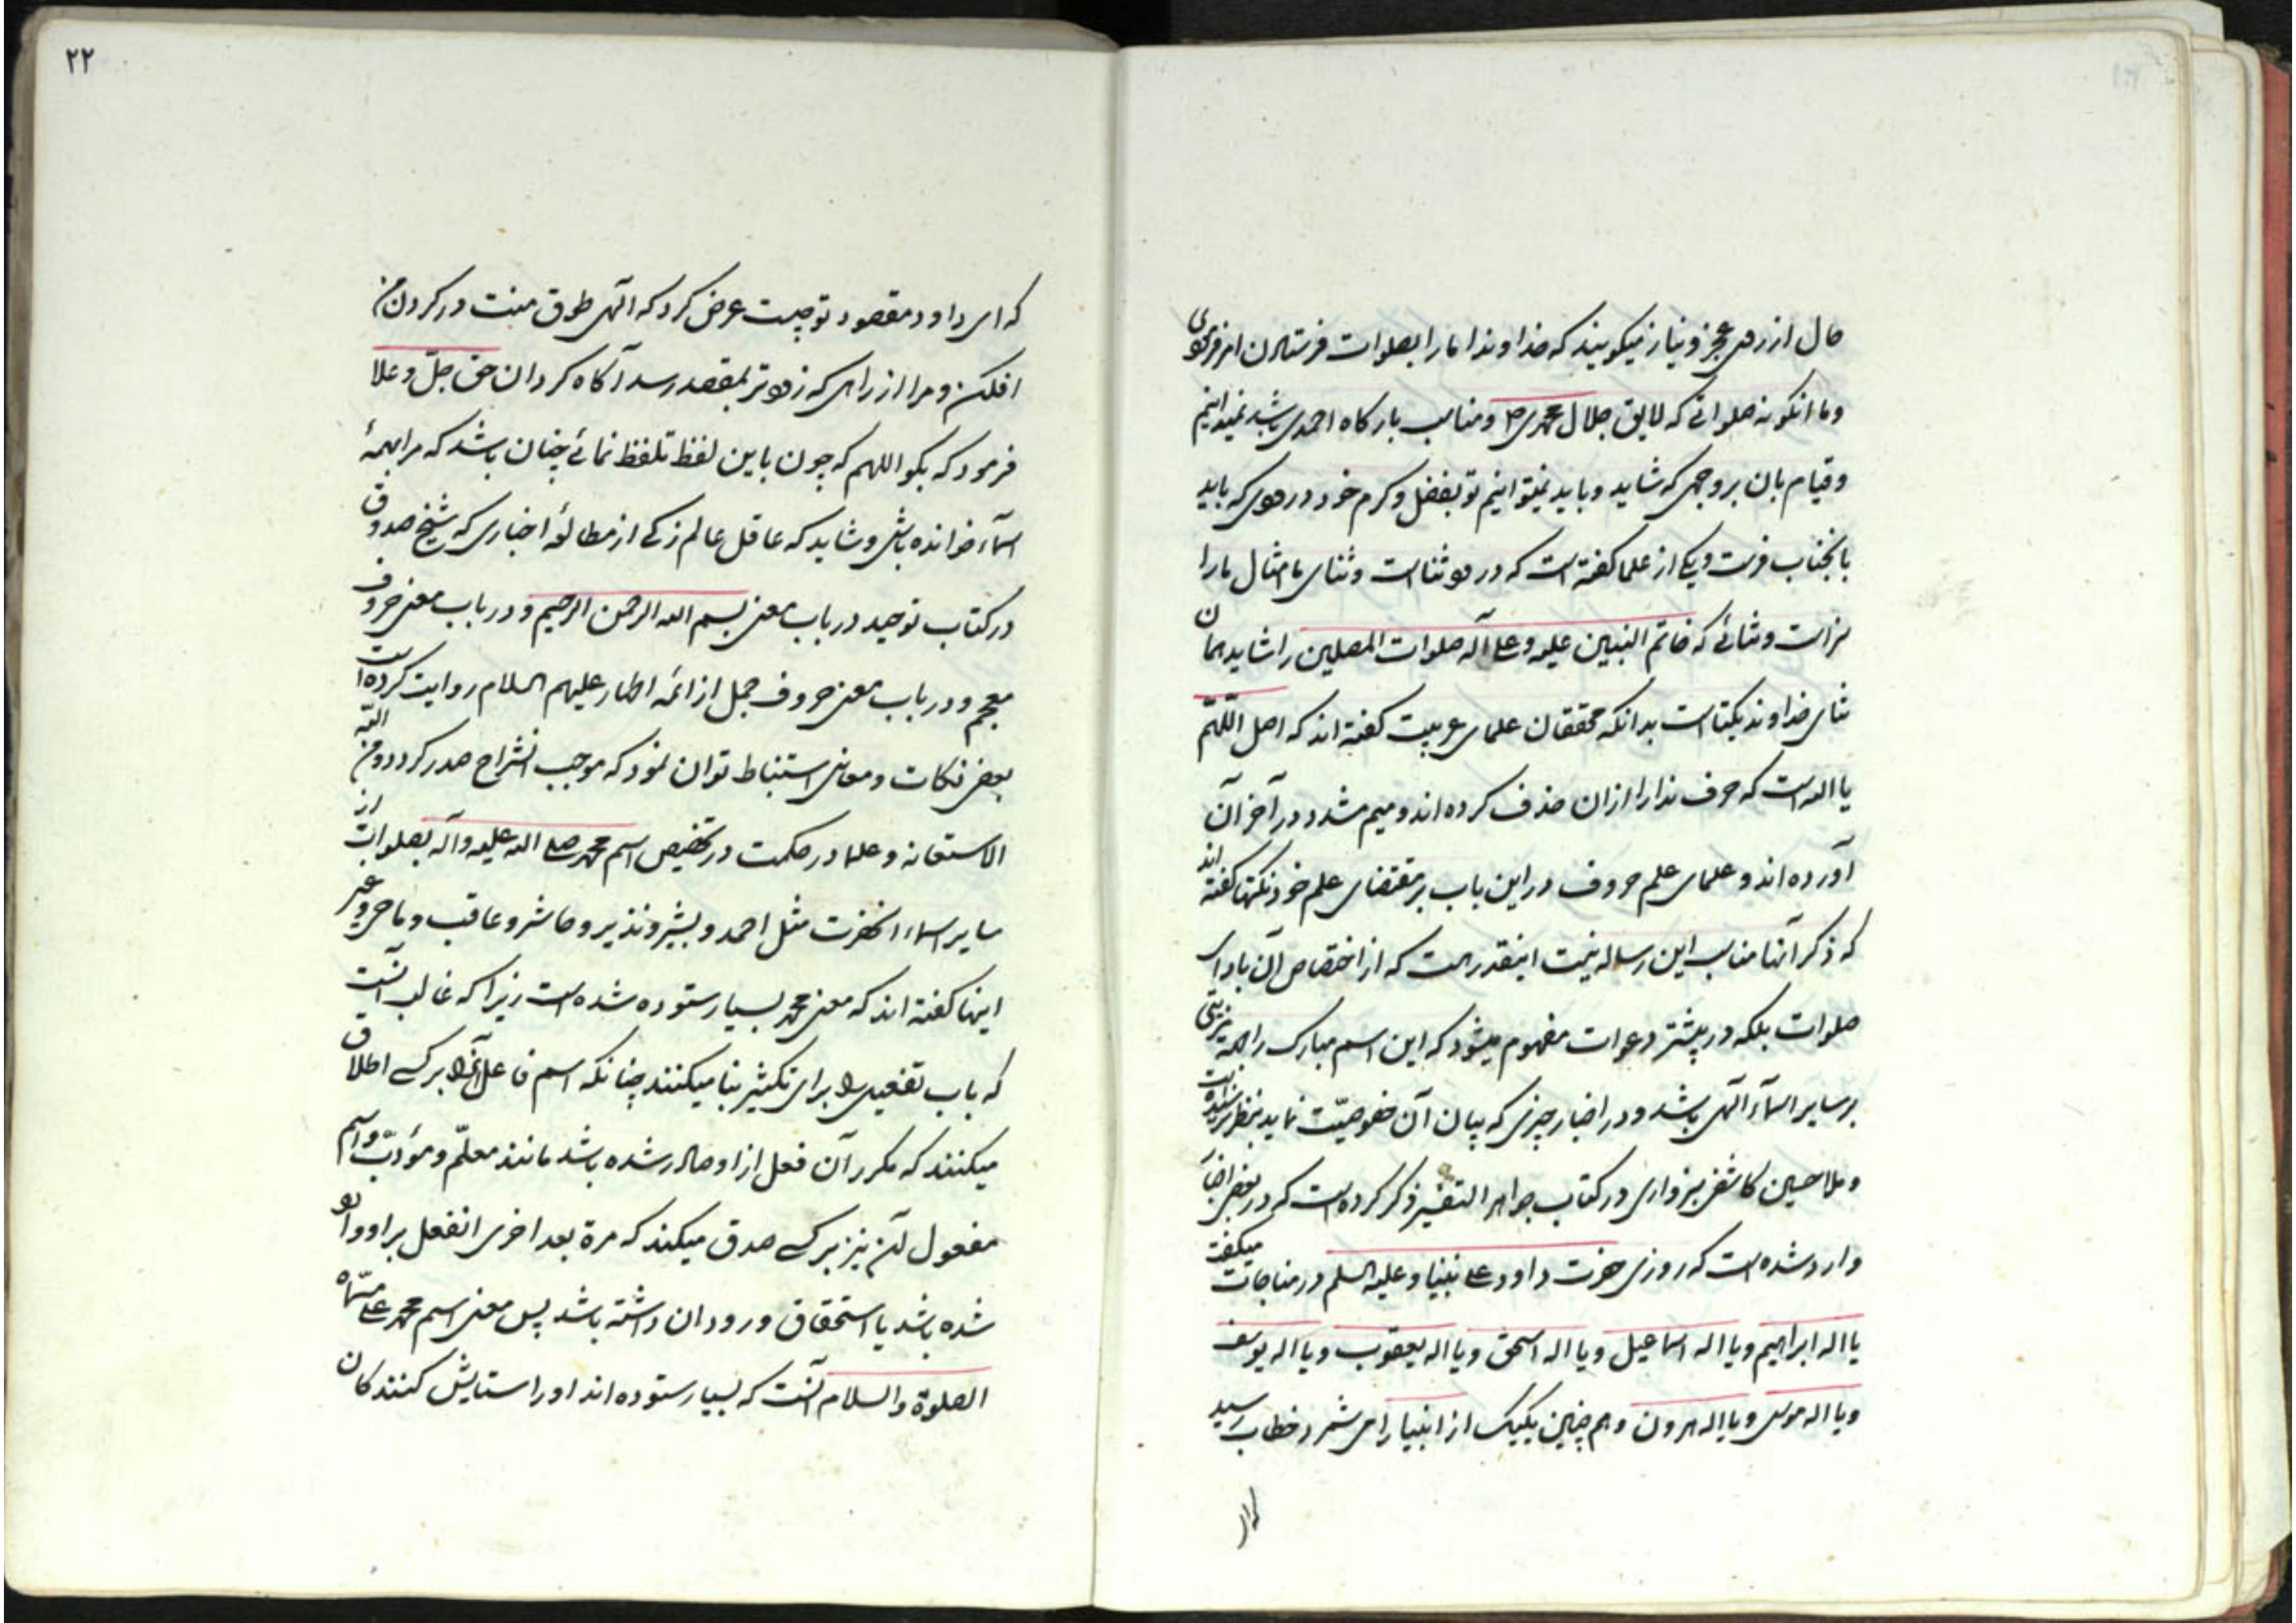 حال از ره عجز و نیاز میکویند که خداوندا ما را بصلوات فرستادن امر فرمودی
و ما انکونه صلواتی که لایق جلال محمدی ص و مناسب بارکاه احمدی باشد نمیدانیم
و قیام بان بر وجهی که شاید و باید نمیتوانیم تو بفضل و کرم خود درودی که باید
بانجناب فرست و یکی از علما کفته است که درود ثنا است و ثنای ما مثال ما را
سزاست و ثنائی که خاتم النبیین علیه و علی آله صلوات المصلین را شاید همان
ثنای خداوند یکتاست بدانکه محققان علمای عربیت کفته اند که اصل اللّهمّ
یا الله است که حرف ندا را ازان حذف کرده اند و میم مشدد در آخر آن
آورده اند و علمای علم حروف در این باب بر مقتضای علم خود نکتها کفته اند
که ذکر آنها مناسب این رساله نیست اینقدر هست که از اختصاص آن بادای
صلوات بلکه در بیشتر دعوات مفهوم میشود که این اسم مبارک را البته مزیتی
بر سایر اسمآء الهی باشد و در اخبار چیزی که بیان آن خصوصیّت نماید بنظر نرسیده است
و ملا حسین کاشفی سبزواری در کتاب جواهر التفسیر ذکر کرده است که در بعضی اخبار
وارد شده است که روزی حضرت داود علی نبینا و علیه السلم در مناجات میکفت
یا اله ابراهیم و یا اله اسماعیل و یا اله اسحق و یا اله یعقوب و یا اله یوسف
و یا اله موسی و یا اله هرون و هم چنین یکیک از انبیا را می شمرد خطاب رسید
۲۲
که ای داود مقصود تو چیست عرض کرد که الهی طوق منت در کردن من
افکن و مرا از راهی که زودتر بمقصد رسد آکاه کردان حق جلّ و علا
فرمود که بکو اللهم که چون باین لفظ تلفظ نمائی چنان باشد که مرا بهمهٔ
اسمآء خوانده باشی و شاید که عاقل عالم زکی از مطالعهٔ اخباری که شیخ صدوق
در کتاب توحید در باب معنی بسم الله الرحمن الرحیم و در باب معنی حروف
معجم و در باب معنی حروف جمل از ائمه اطهار علیهم السلام روایت کرده است
بعضی نکات و معانی استنباط توان نمود که موجب انشراح صدر کردد و من الله
الاستعانه و علما در حکمت در تخصیص اسم محمد صلی الله علیه و آله بصلوات از
سایر اسماء انحضرت مثل احمد و بشیر و نذیر و حاشر و عاقب و ماحی و غیر
اینها کفته اند که معنی محمد بسیار ستوده شده است زیرا که غالب آنست
که باب تفعیل را برای تکثیر بنا میکنند چنانکه اسم فاعل آنرا بر کسی اطلاق
میکنند که مکرر آن فعل از او صادر شده باشد مانند معلّم و مؤدّب و اسم
مفعول آن نیز بر کسی صدق میکند که مرة بعد اخری انفعل بر او واقع
شده باشد یا استحقاق ورود ان داشته باشد پس معنی اسم محمد علی مسمّاه
الصلوة والسلام آنست که بسیار ستوده اند او را ستایش کنندکان